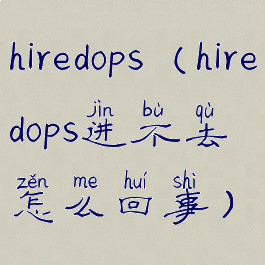 hiredops（hire
jìn bù qù
dops进不去
zěn me huí shì
怎么回事）